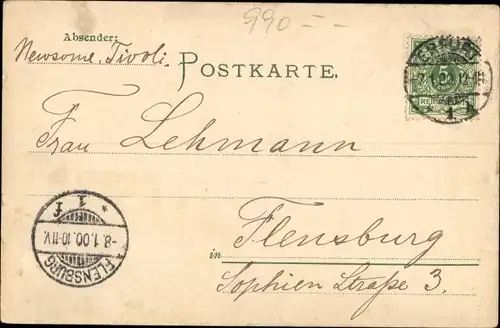 990 = =
Absender:
Newsome, Tivoli.
POSTKARTE.
ERFURT
1
Frau Lehmann
* 1 f
-8.1.00.10-11V.
FLENSBURG
in Flensburg
Sophien Straße 3.